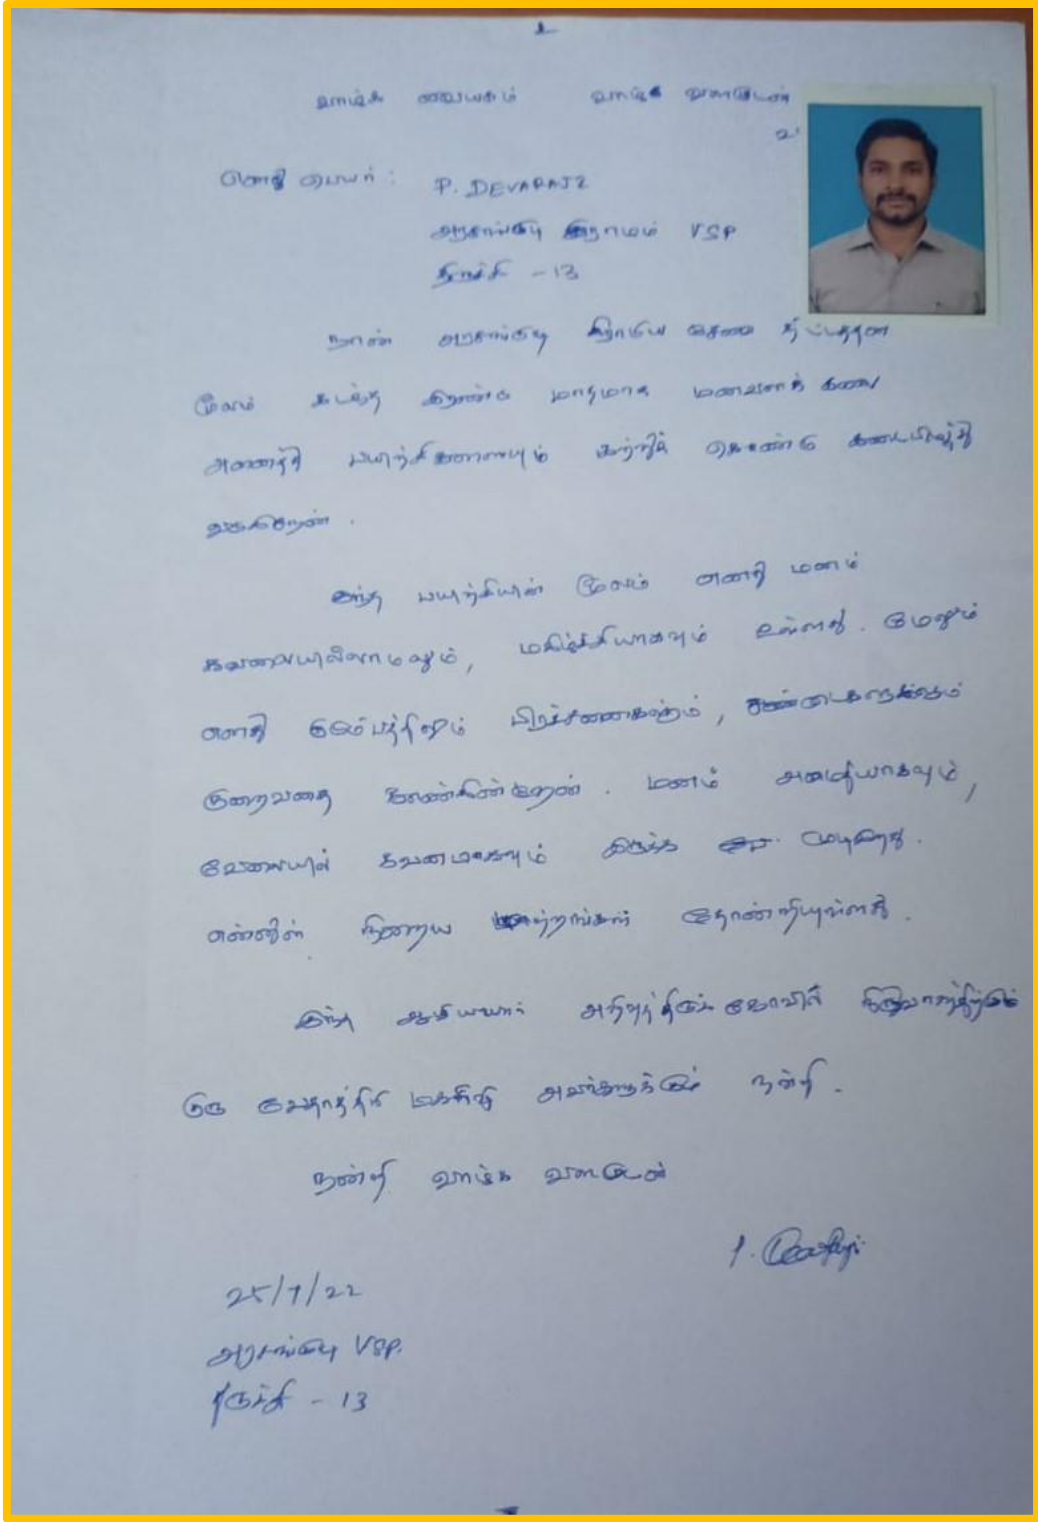 உ
வாழ்க வையகம் வாழ்க வளமுடன்
எனது பெயர் : P. DEVARAJ
அரசங்குடி கிராமம் VSP
திருச்சி - 13
நான் அரசங்குடி கிராமிய சேவை திட்டத்தின
மூலம் கடந்த இரண்டு மாதமாக மனவளக் கலை
அனைத்து பயிற்சிகளையும் கற்றுக் கொண்டு கடைபிடித்து
வருகிறேன் .
இந்த பயிற்சியின் மூலம் எனது மனம்
கவலையில்லாமலும், மகிழ்ச்சியாகவும் உள்ளது. மேலும்
எனது குடும்பத்திலும் பிரச்சனைகளும், சண்டைகளும்
குறைவதை காண்கின்றேன் . மனம் அமைதியாகவும்,
வேலையில் கவனமாகவும் இருக்க முடிகிறது.
என்னில் நிறைய மாற்றங்கள் தோன்றியுள்ளது.
இந்த ஆழியாார் அறிவுத்திருக் கோவில் நிருவாகத்திற்கும்
குரு வேதாத்திரி மகரிஷி அவர்களுக்கும் நன்றி .
நன்றி வாழ்க வளமுடன்
25/7/22
அரசங்குடி VSP.
திருச்சி - 13